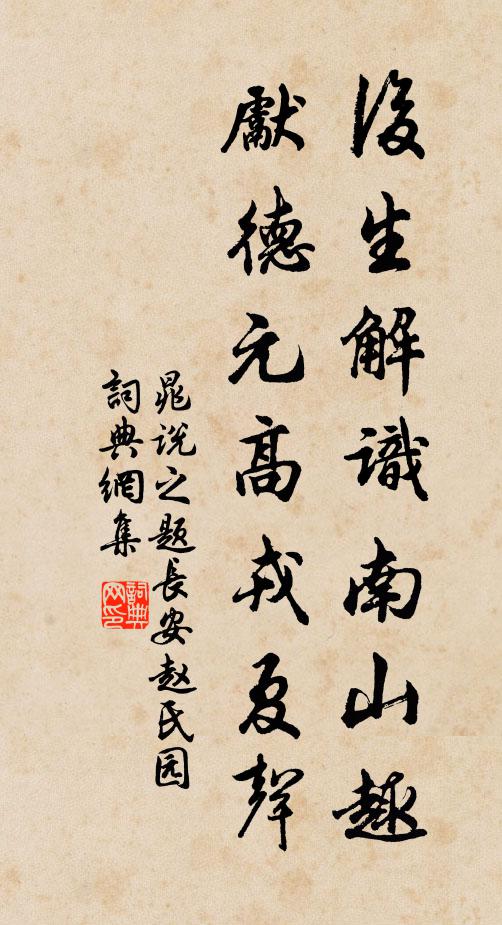 後生解識南山趣
獻德元高戎夏聲
晁说之题長安赵民园
詞典網集
詞典网印